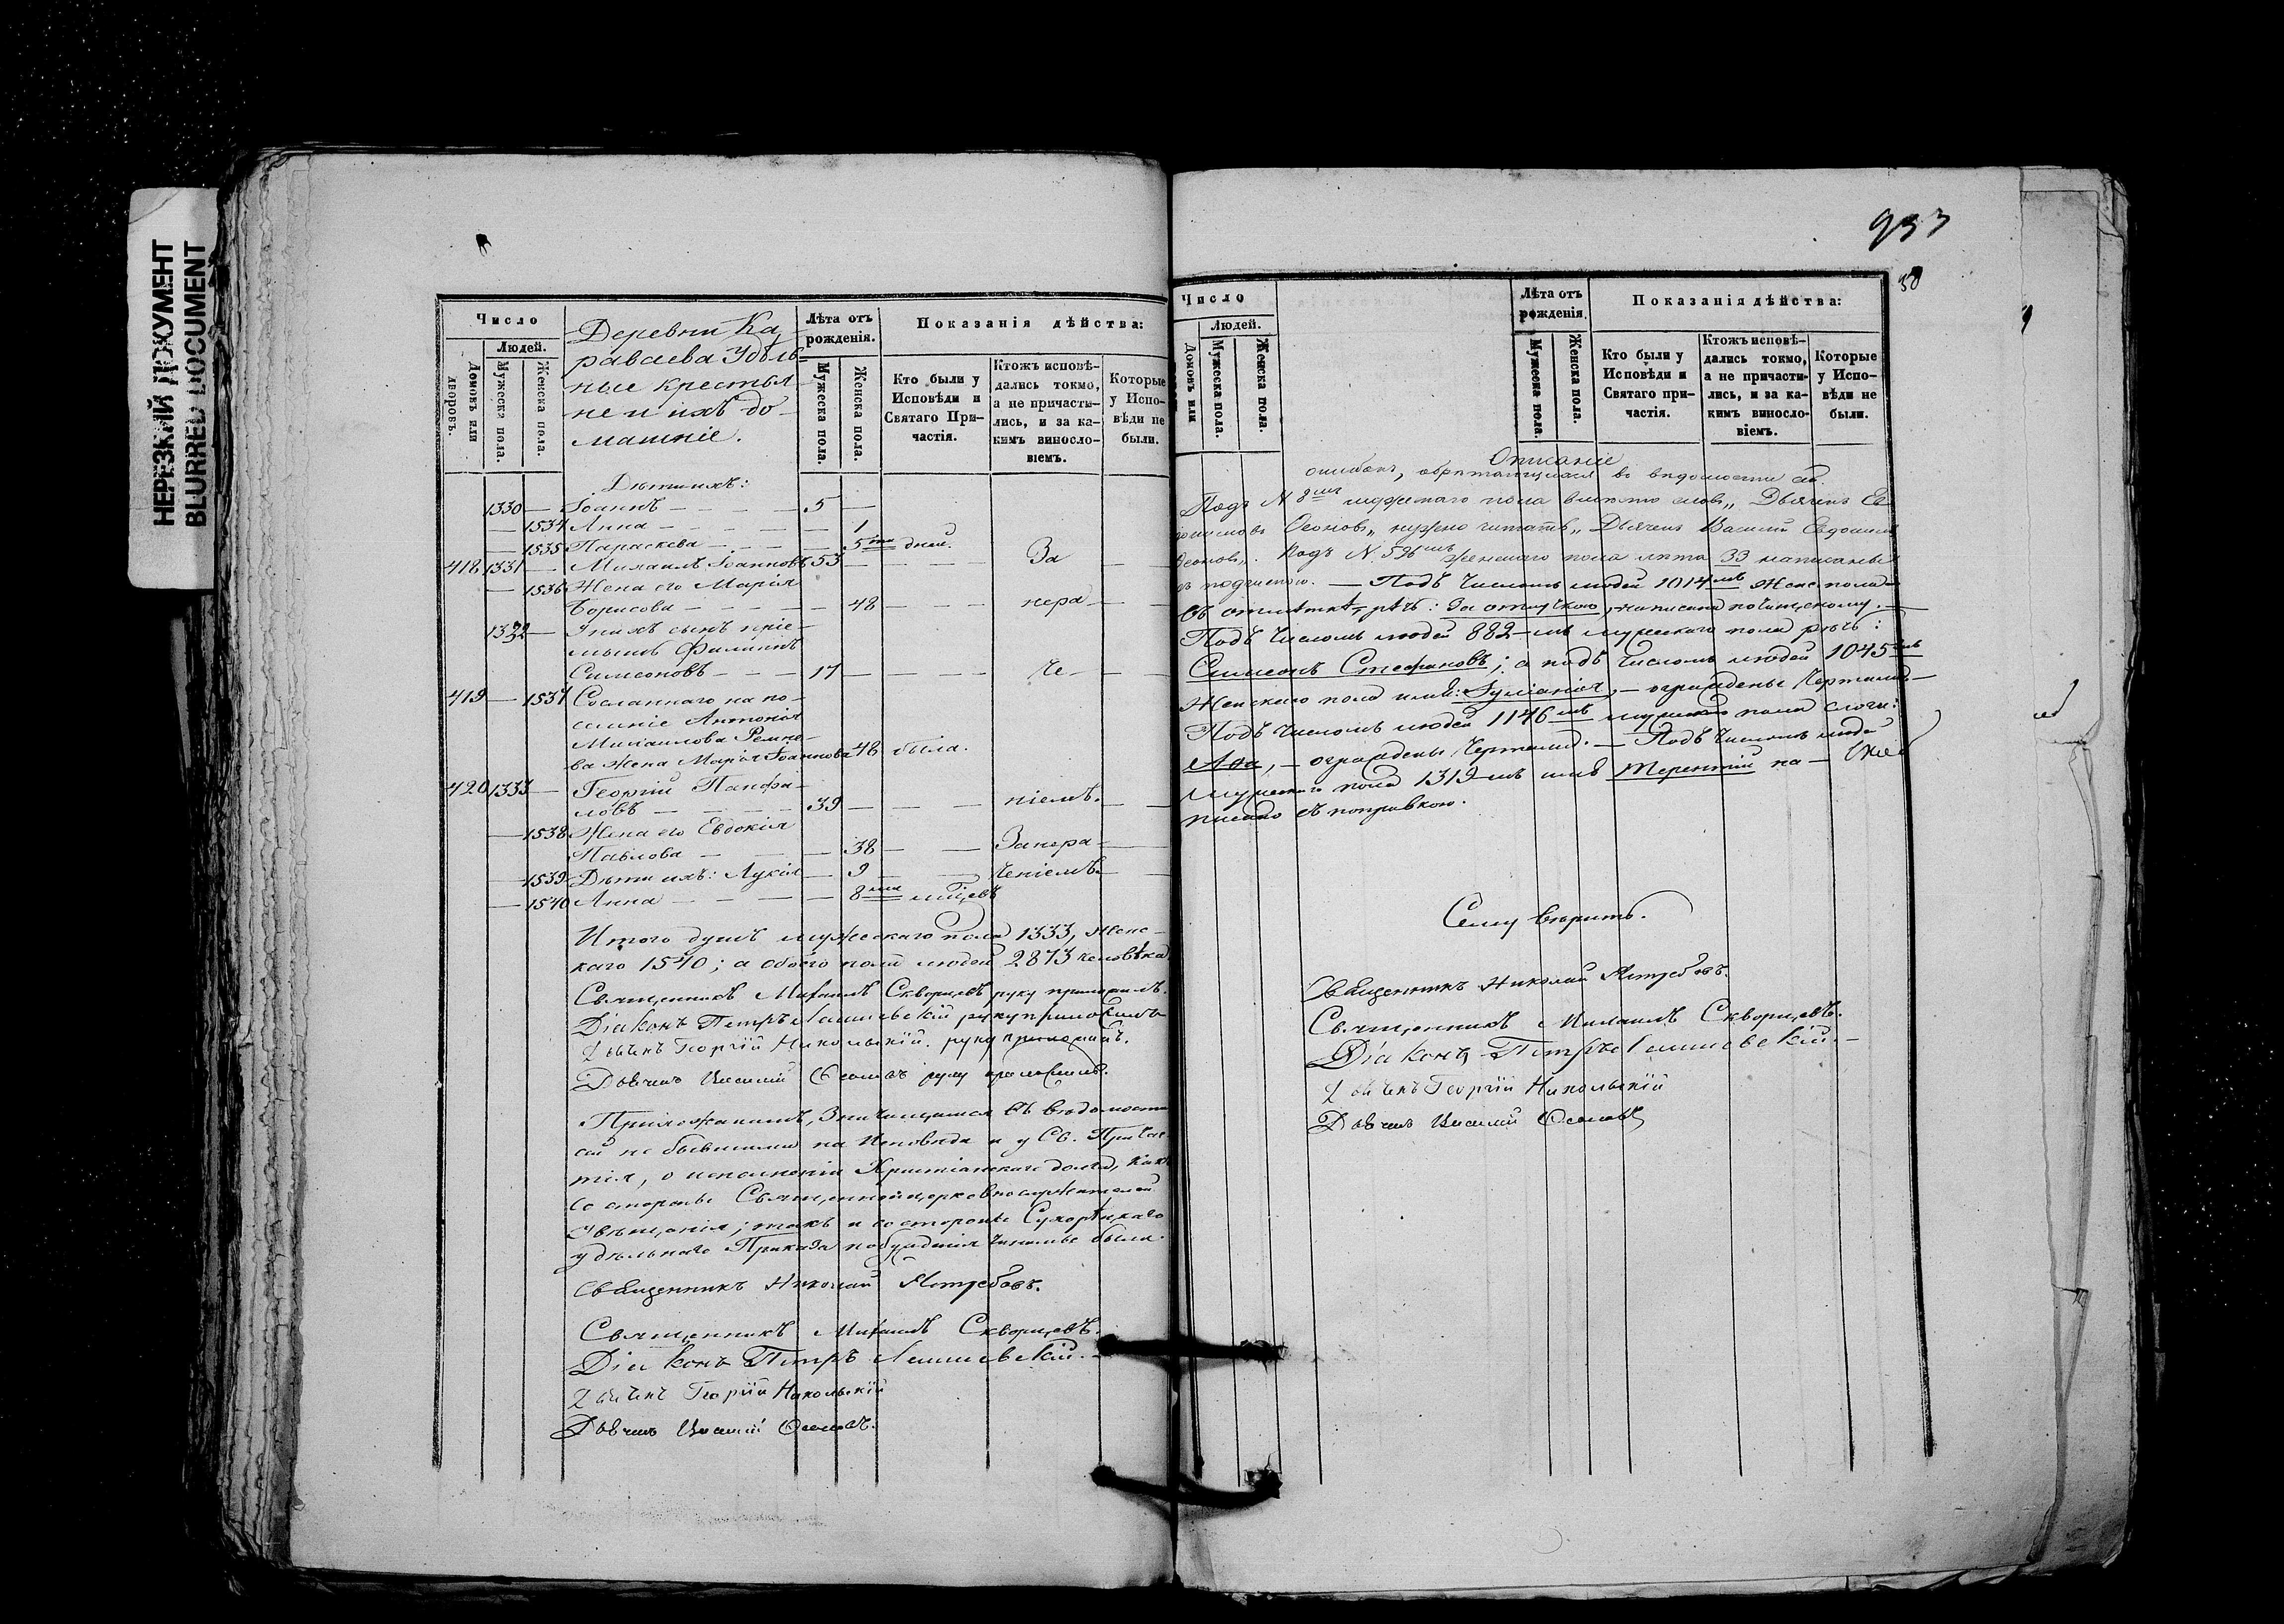 НЕРЕЗКИЙ ДОКУМЕНТ
BLURRED DOCUMENT
Число
Людей.
Домовъ или дворовъ.
Мужеска пола.
Женска пола.
Деревни Ка-
раваева Удѣль-
ные крестья-
не и ихъ до-
машніе.
Лѣта отъ рожденія.
Мужеска пола.
Женска пола.
Показанія дѣйства:
Кто были у Исповѣди и Святаго При-частія.
Ктожъ исповѣ-дались токмо, а не причасти-лись, и за ка-кимъ виносло-віемъ.
Которые у Испо-вѣди не были.
Дѣти ихъ:
1330 — Іоаннъ — — — — 5 —
— 1534 Анна — — — — 1
— 1535 Параскева — — — 5ти дней.
418 1331 — Михаилъ Іоанновъ 53 — — — За
— 1536 Жена его Марія
Борисова — — — — 48 — — — нера — —
1332 — У нихъ сынъ пріе-
мышъ Филиппъ
Симеоновъ — — — 17 — — — — че — — —
419 — 1537 Сосланнаго на по-
селеніе Антонія
Михаилова
ва жена Марія Іоаннова 48 была.
420 1333 — Георгій Панфи-
ловъ — — — 39 — — — ніемъ. — —
— 1538 Жена его Евдокія
Павлова — — — 38 — — Занера- —
— 1539 Дѣти ихъ: Лукія — 9 — — ченіемъ —
— 1540 Анна — — — — 8ми мѣсяцевъ
Итого душъ мужескаго пола 1333, женс-
каго 1540; а обоего пола людей 2873 человѣка.
Священникъ Михаилъ Скворцевъ руку приложилъ.
Діаконъ Петръ руку приложилъ
Дьячекъ Георгій Никольскій. руку приложилъ.
Дьячекъ Василій Осоновъ руку приложилъ.
Прихожанамъ, значащимся въ вѣдомости
сей не бывшими на Исповѣди и у Св. Причас-
тія, о исполненіи Христіанскаго долга, какъ
со стороны Священноицерковнослужителей
увѣщанія; такъ и со стороны Сухорѣцкаго
удѣльнаго Приказа побужденія чинимы были.
Священникъ Николай Ястребовъ.
Священникъ Михаилъ Скворцевъ.
Діаконъ Петръ
Дьячекъ Георгій Никольскій
Дьячекъ Василій Осоновъ.
Число
Людей.
Домовъ или
Мужеска пола.
Женска пола.
Лѣта отъ рожденія.
Мужеска пола.
Женска пола.
Показанія дѣйства:
Кто были у Исповѣди и Святаго при-частія.
Ктожъ исповѣ-дались токмо, а не причасти-лись, и за ка-кимъ виносло-віемъ.
Которые у Испо-вѣди не были.
Описаніе
ошибокъ, обрѣтающихся въ вѣдомости сей.
Подъ N 8мъ мужескаго пола вмѣсто словъ „Дьячекъ Ев-
докимовъ Осоновъ„ нужно читать „Дьячекъ Василій Евдокимовъ
Осоновъ„. Подъ N. 596мъ женскаго пола лѣта 33 написаны
съ подчисткою. — Подъ числомъ людей 1014мъ женс. пола
въ отмѣткѣ рѣчь: За отлучкою, написана по чищеному. —
Подъ числомъ людей 882-мъ мужескаго пола рѣчь:
Симеонъ Стефановъ; а подъ числомъ людей 1045мъ
Женскаго пола имя: Іуліанія, — ограждены чертами. —
Подъ числомъ людей 1146мъ мужескаго пола слоги:
— ограждены чертами. — Подъ числомъ людей
мужескаго пола 1319-мъ имя Терентій на-
писано съ поправкою.
Сему вѣрить.
Священникъ Николай Ястребовъ.
Священникъ Михаилъ Скворцевъ.
Діаконъ Петръ
Дьячекъ Георгій Никольскій
Дьячекъ Василій Осоновъ